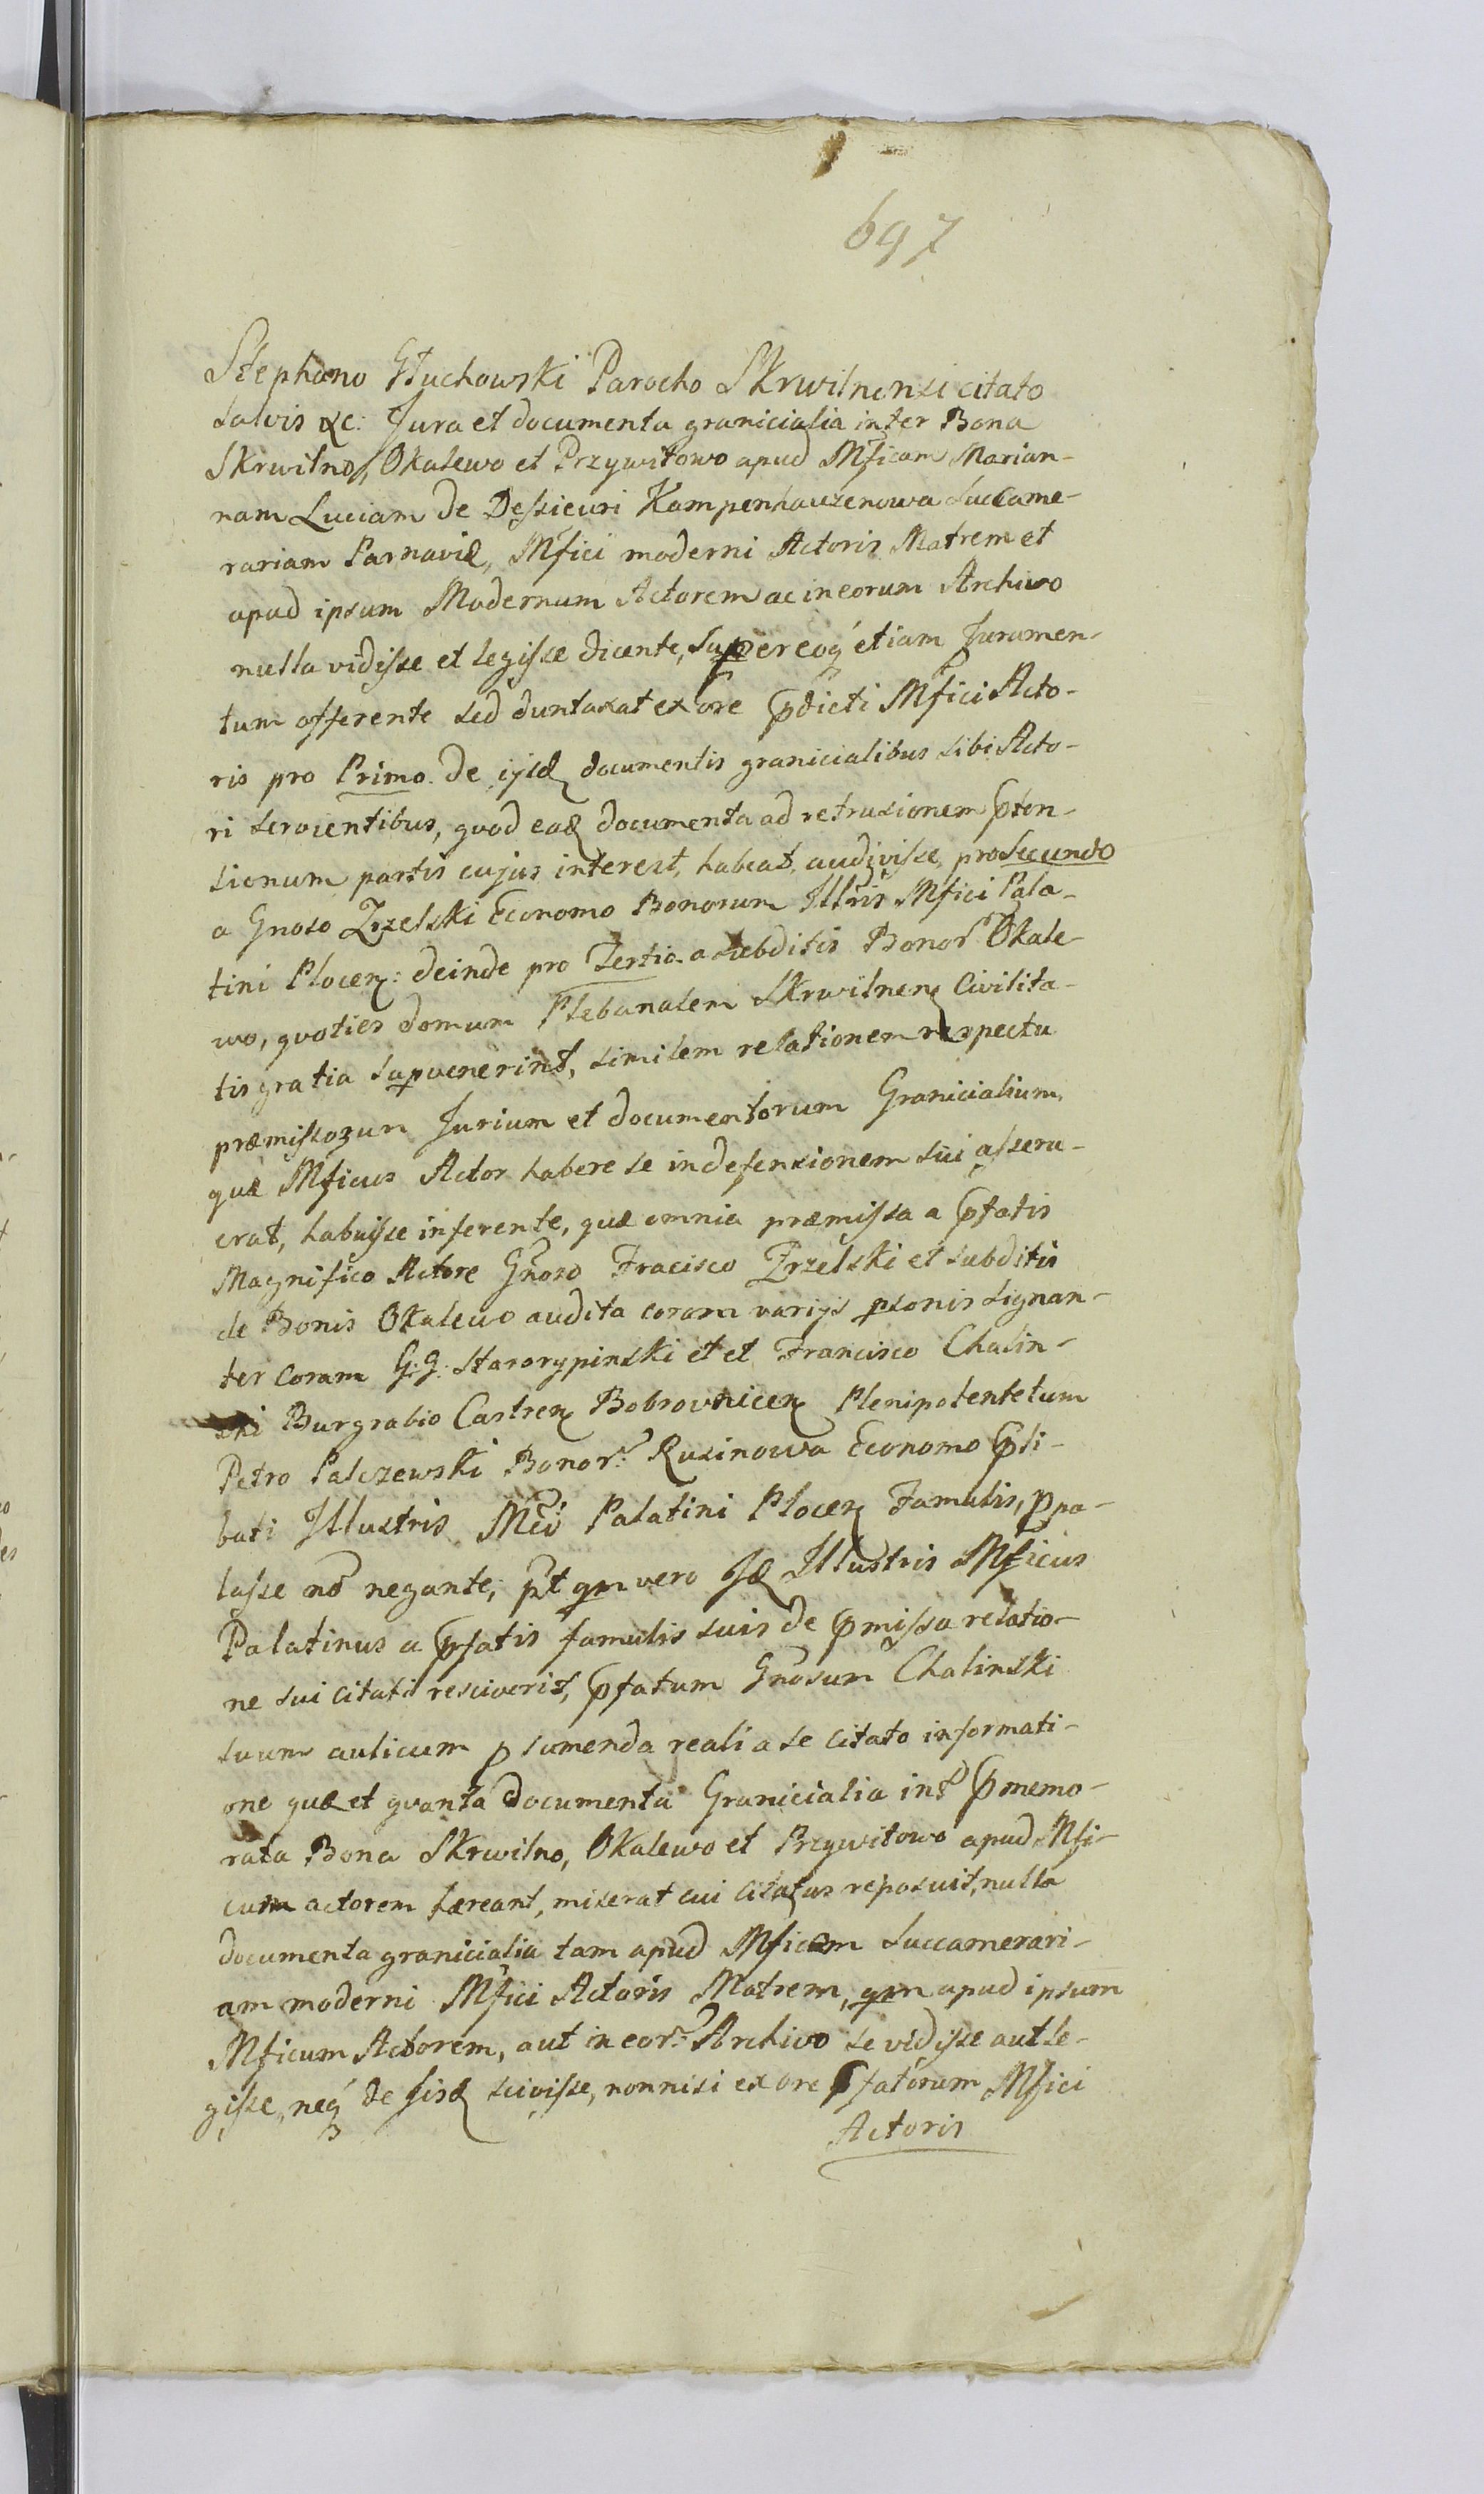 697
Stephano Głuchowski Parocho Skrwilnensi citato
salvis &c: Jura et documenta granicialia inter Bona
Skrwilno, Okalewo et Przywitowo apud Mficam Marian-
nam Luciam de Dessieuri Kampenhauzenowa Succame-
rariam Parnaviæ, Mfici moderni Actoris Matrem et
apud ipsum Modernum Actorem ac in eorum Archivo
nulla vidisse et legisse dicente, Super eoq etiam Juramen-
tum offerente sed duntaxat ex ore pdicti Mfici Acto-
ris pro Primo de ijsd documentis granicialibus sibi Acto-
ri servientibus, quod ead documenta ad retrusionem pten-
sionum partis cujus interest, habeat, audivisse, pro Secundo
a Gnoso Zrzelski Economo Bonorum Illris Mfici Pala-
tini Plocen: deinde pro Tertio a subditis Bonor Okale-
wo, quoties domum Plebanalem Skrwilnen Civilita-
tis gratia supvenerint, similem relationem respectu
præmissorum Jurium et documentorum Granicialium,
quæ Mficus Actor habere se in defensionem sui asseru-
erat, habuisse inferente, quæ omnia præmissa a pfatis
Magnifico Actore Gnoso Fracisco Zrzelski et subditis
de Bonis Okalewo audita coram varijs psonis signan-
ter coram G:G: Starorypinski et et Francisco Chalin-
ski Burgrabio Castren Bobrovnicen Plenipotente tum
Petro Palczewski Bonor: Rusinowa Economo pli-
bati Illustris Mci Palatini Plocen Famulis, ppa-
lasse no negante; pt qm vero Id Illustris Mficus
Palatinus a pfatis famulis suis de pmissa relatio-
ne sui citati resciverit, pfatum Gnosum Chalinski
suum aulicum p sumenda reali a se citato informati-
one quæ et quanta documenta Granicialia int pmemo-
rata Bona Skrwilno, Okalewo et Przywitowo apud Mfi-
cum actorem hæreant, miserat cui citatus reposuit, nulla
documenta granicialia tam apud Mficam Succamerari-
am moderni Mfici Actoris Matrem, qm apud ipsum
Mficum Actorem, aut in eor: Archivo se vidisse aut le-
gisse, neq de Iisd scivisse, nonnisi ex ore pfatorum Mfici
Actoris